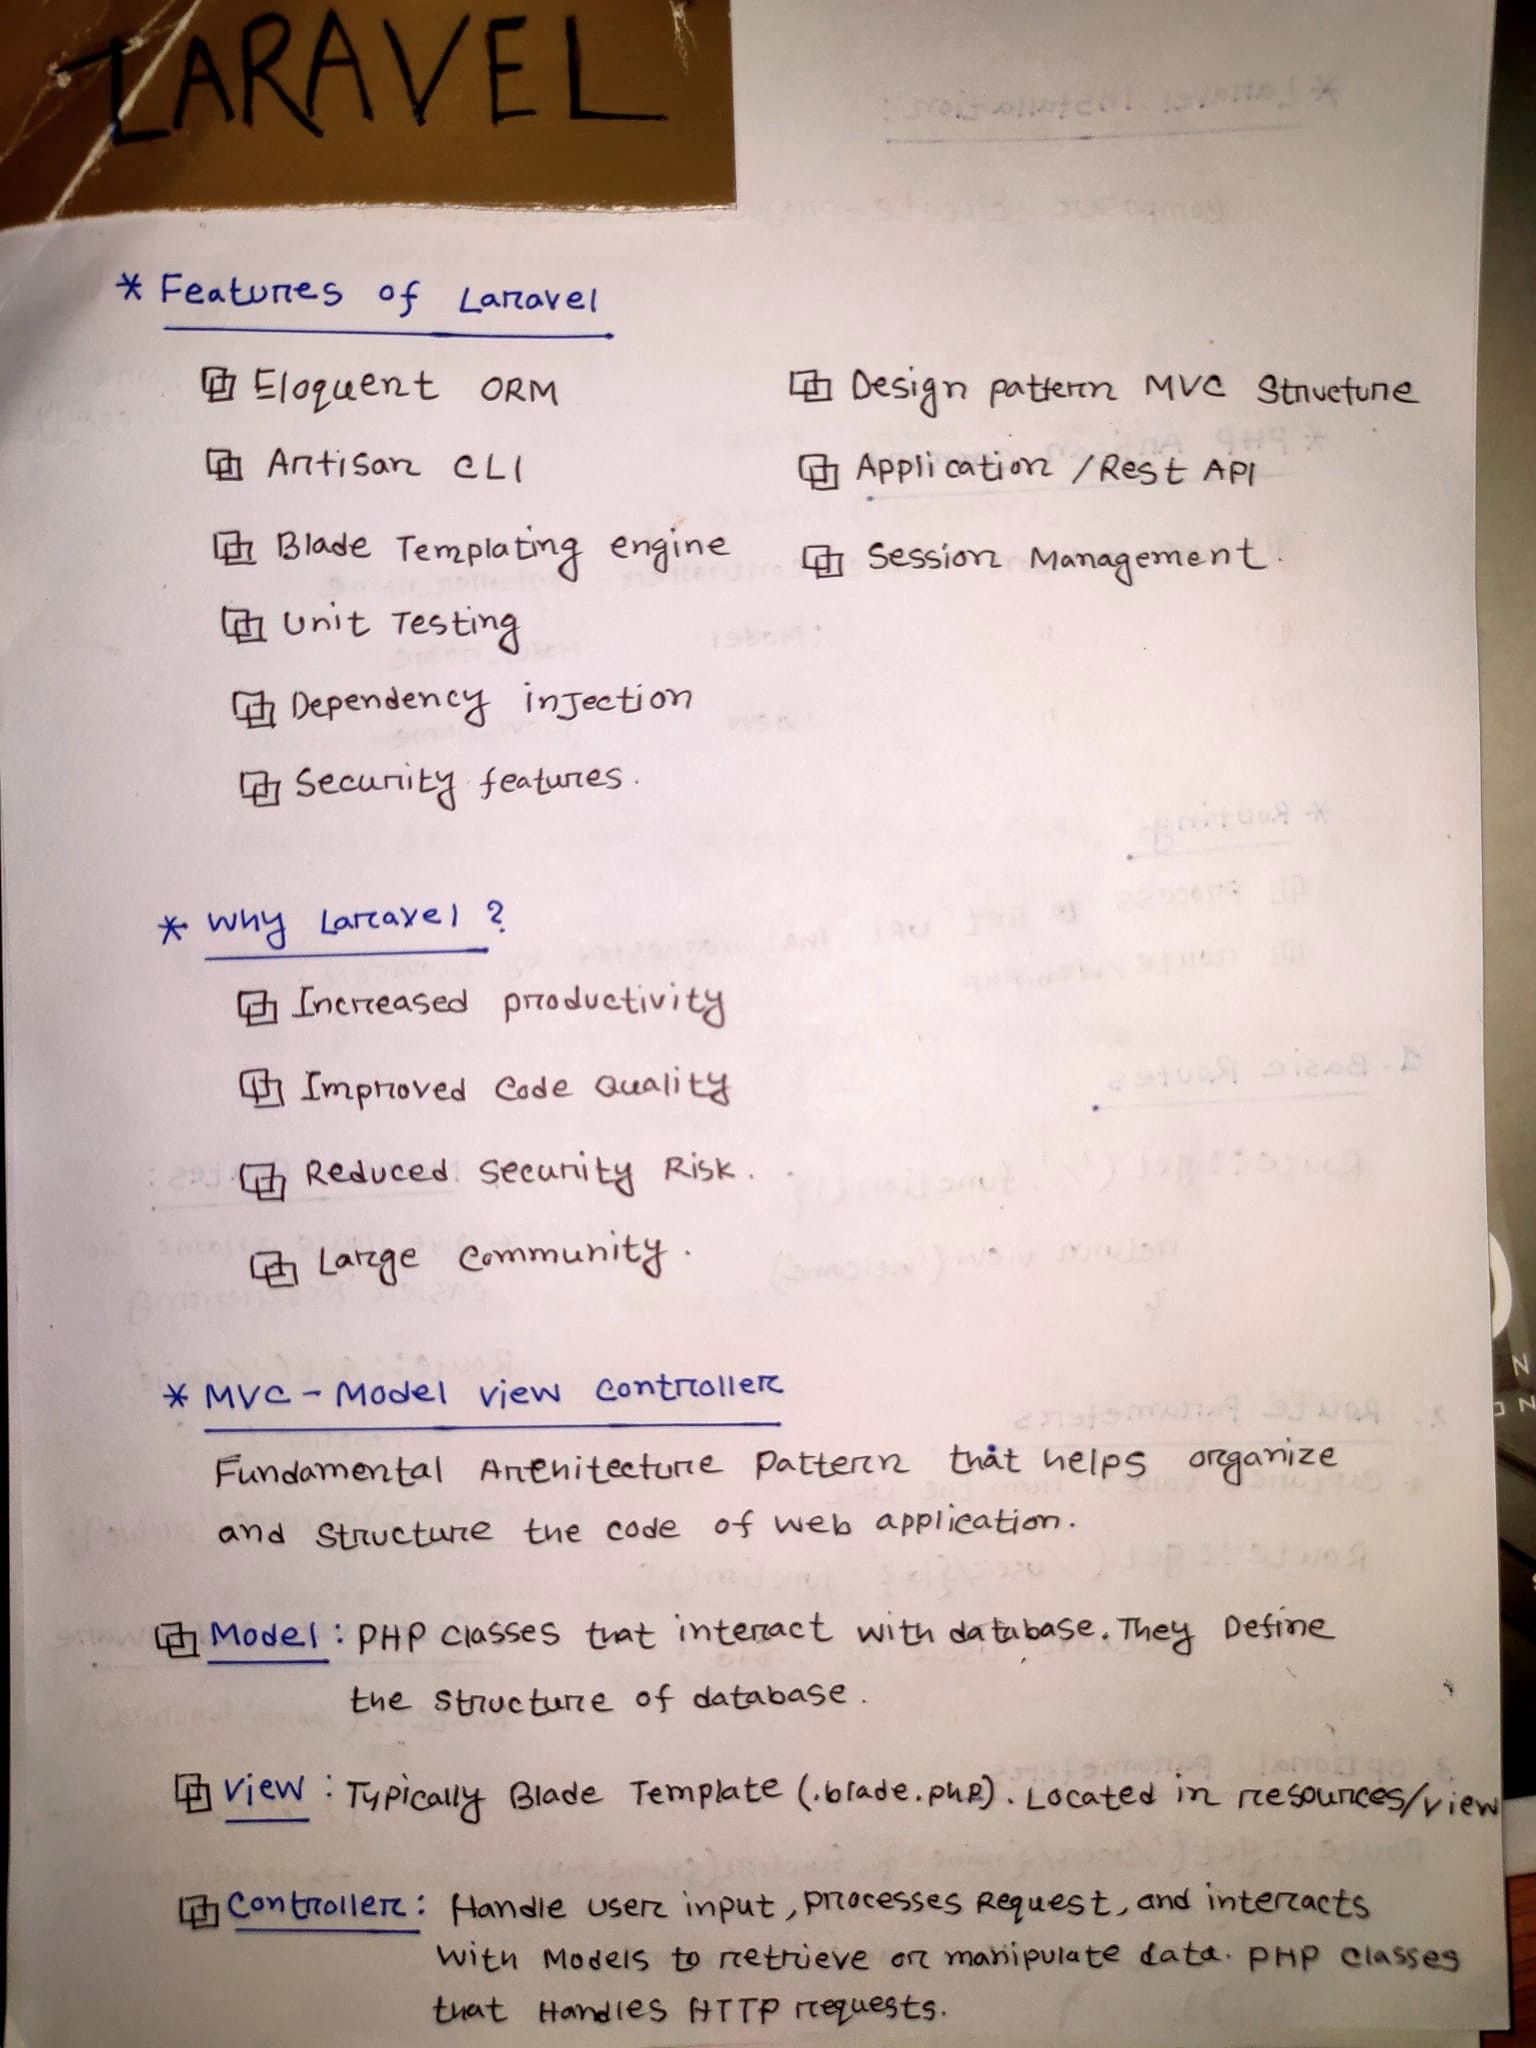 LARAVEL
* Features of Laravel
Eloquent ORM
Artisan CLI
Blade Templating engine
Unit Testing
Dependency injection
Security features.
Design pattern MVC Structure
Application / Rest API
Session Management.
* Why Laravel ?
Increased productivity
Improved Code Quality
Reduced Security Risk.
Large Community.
* MVC - Model View Controller
Fundamental Architecture Pattern that helps organize
and structure the code of web application.
Model : PHP classes that interact with database. They Define
the structure of database.
View : Typically Blade Template (.blade.php). Located in resources/view
Controller : Handle user input, processes Request, and interacts
with Models to retrieve or manipulate data. PHP classes
that Handles HTTP requests.